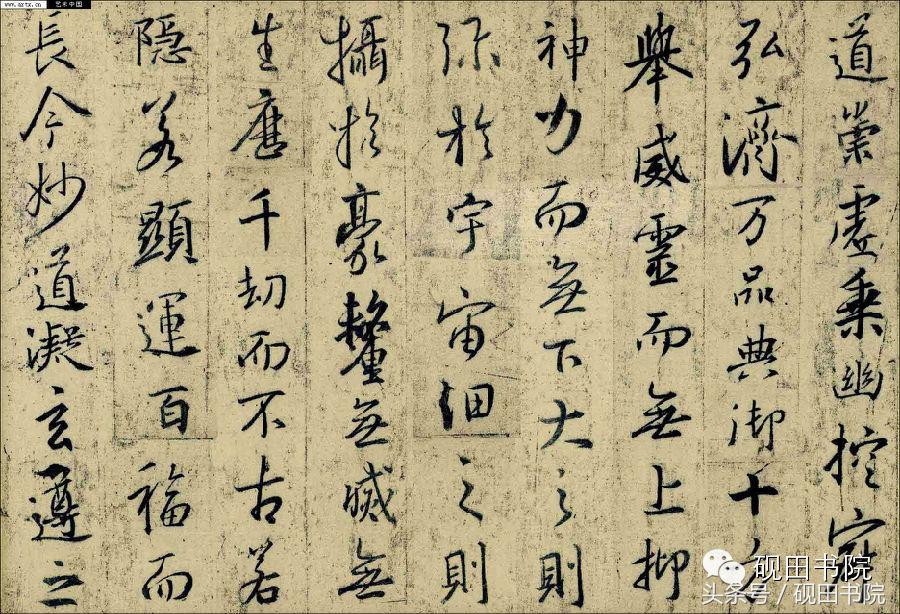 道崇虚乘幽控寂
弘濟万品典御十方
舉威靈而無上抑
神力而無下大之則
弥於宇宙細之則
攝於豪釐無滅無
生歷千劫而不古若
隱若顯運百福而
長今妙道凝玄遵之
www.artx.cn 艺术中国
砚田书院
头条号／砚田书院